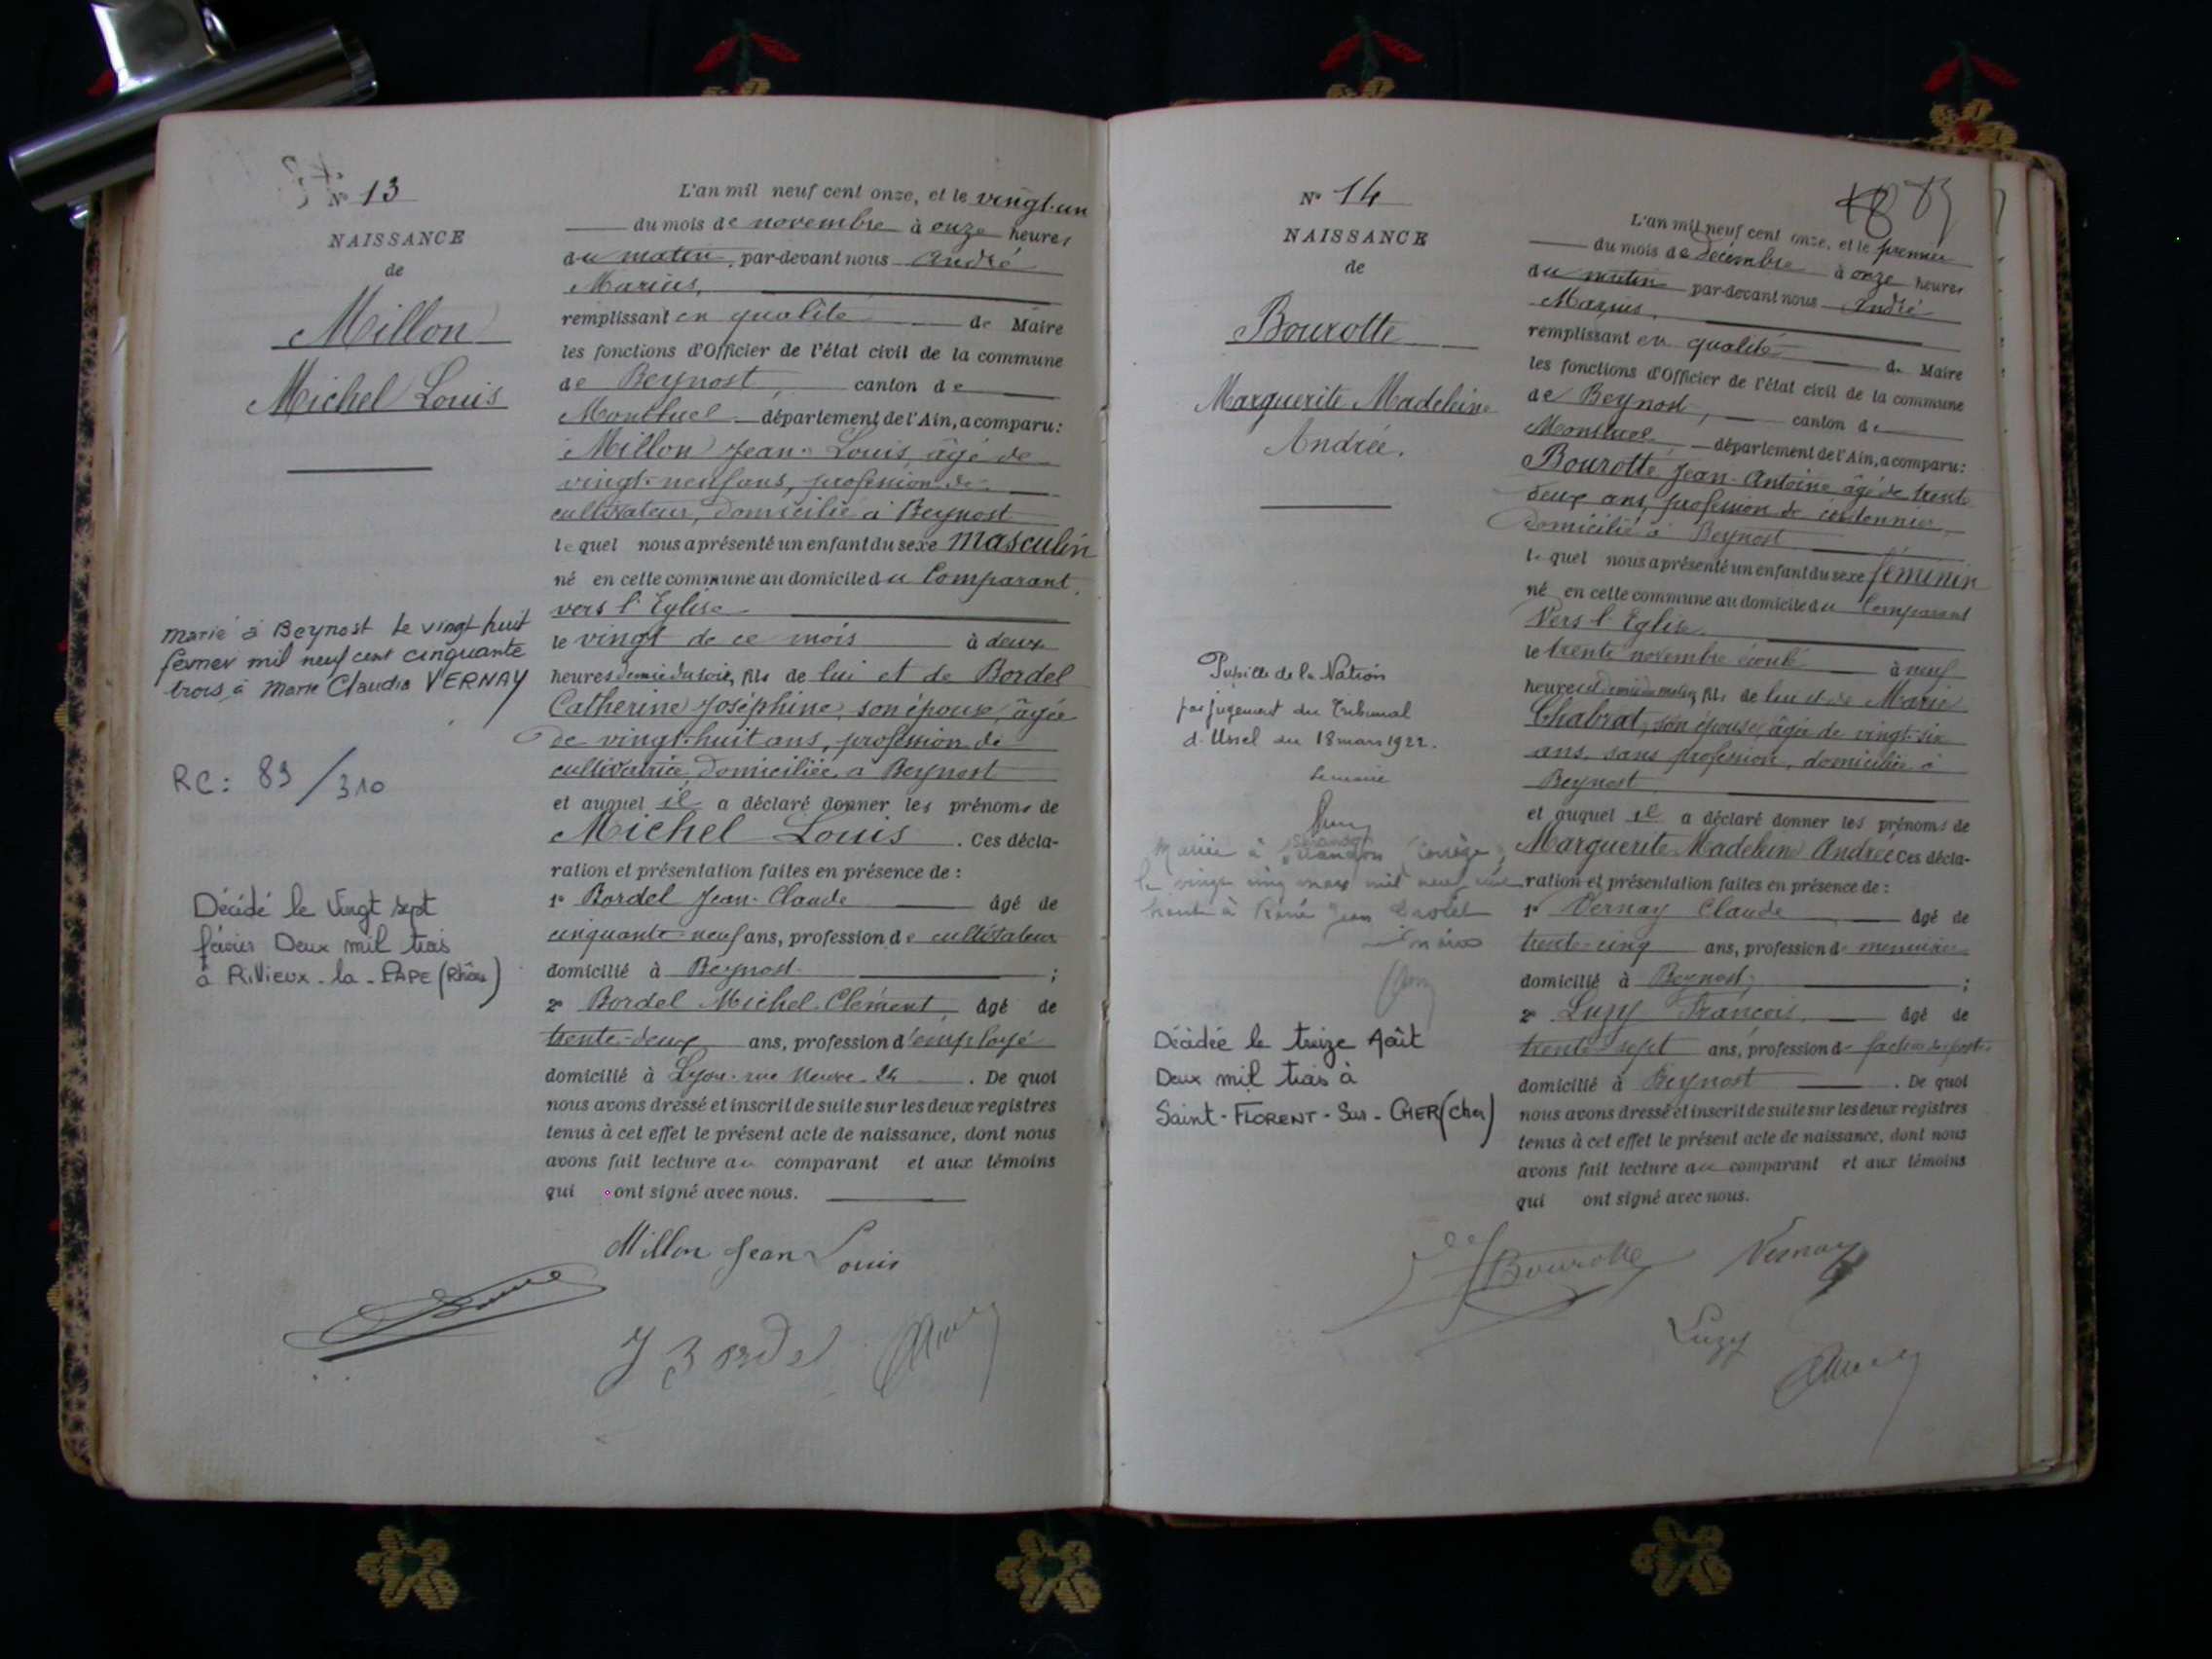 N° 13
NAISSANCE
de
Millon
Michel Louis
marié à Beynost le vingt huit
fevrier mil neuf cent cinquante
trois à Marie Claudia VERNAY
RC: 83/310
Décédé le Vingt sept
février Deux mil trois
à RiVieux-la-PAPE (Rhône)
L'an mil neuf cent onze, et le vingt-un
du mois de novembre à onze heures
du matin, par-devant nous André
Marius,
remplissant en qualité de Maire
les fonctions d'Officier de l'état civil de la commune
de Beynost, canton de
Montluel département de l'Ain, a comparu:
Millon Jean-Louis, âgé de
vingt-neuf ans, profession de
cultivateur, domicilié à Beynost
lequel nous a présenté un enfant du sexe masculin
né en cette commune au domicile du Comparant,
vers l'Eglise
le vingt de ce mois à deux
heures demie du soir, fils de lui et de Bordel
Catherine Joséphine, son épouse, âgée
de vingt-huit ans, profession de
cultivatrice, domiciliée à Beynost
et auquel il a déclaré donner les prénoms de
Michel Louis. Ces décla-
ration et présentation faites en présence de :
1° Bordel Jean-Claude âgé de
cinquante-neuf ans, profession de cultivateur
domicilié à Beynost ;
2° Bordel Michel Clément, âgé de
trente-deux ans, profession d'employé
domicilié à Lyon rue Neuve 24. De quoi
nous avons dressé et inscrit de suite sur les deux registres
tenus à cet effet le présent acte de naissance, dont nous
avons fait lecture au comparant et aux témoins
qui ont signé avec nous.
Millon Jean Louis
J Bordel
N° 14
NAISSANCE
de
Bourotte
Marguerite Madeleine
Andrée.
Pupille de la Nation
par jugement du Tribunal
d'Ussel du 18 mars 1922.
Mariée à
le vingt cinq mars mil neuf cent
trente à René Jean
Décédée le treize Août
Deux mil trois à
Saint-FLORENT-Sur-CHER (Cher)
83
L'an mil neuf cent onze, et le premier
du mois de Décembre à onze heures
du matin par-devant nous André
Marius,
remplissant en qualité de Maire
les fonctions d'Officier de l'état civil de la commune
de Beynost, canton de
Montluel département de l'Ain, a comparu:
Bourotte Jean-Antoine âgé de trente
deux ans, profession de cordonnier,
domicilié à Beynost
lequel nous a présenté un enfant du sexe féminin
né en cette commune au domicile du Comparant
Vers l'Eglise
le trente novembre écoulé à neuf
heures et demie du matin, fils de lui et de Marie
Chabrat, son épouse, âgée de vingt-six
ans, sans profession, domiciliée à
Beynost
et auquel il a déclaré donner les prénoms de
Marguerite Madeleine Andrée Ces décla-
ration et présentation faites en présence de :
1° Vernay Claude âgé de
trente-cinq ans, profession de menuisier
domicilié à Beynost ;
2° Luzy François, âgé de
trente-sept ans, profession de facteur des postes
domicilié à Beynost. De quoi
nous avons dressé et inscrit de suite sur les deux registres
tenus à cet effet le présent acte de naissance, dont nous
avons fait lecture au comparant et aux témoins
qui ont signé avec nous.
Bourotte Vernay
Luzy